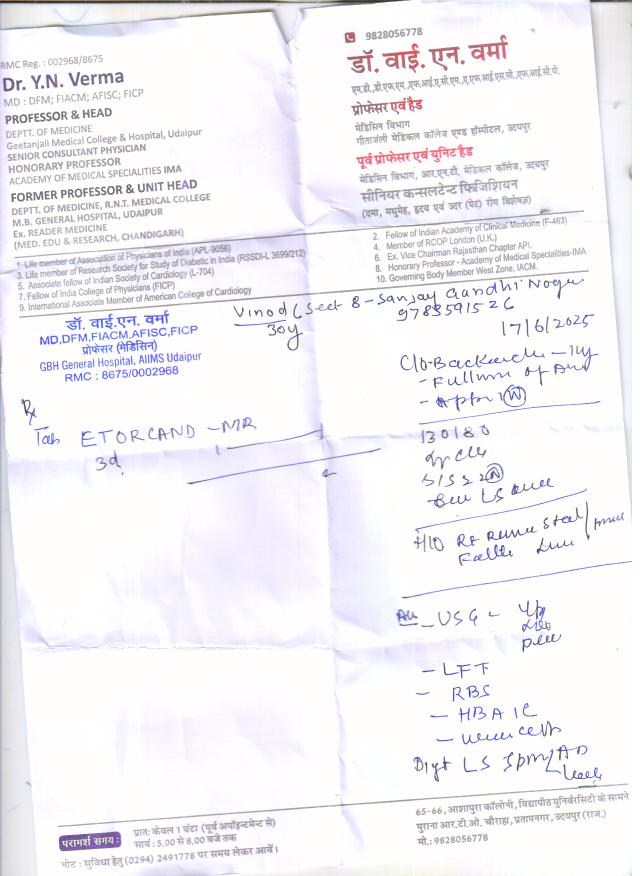 RMC Reg. : 002968/8675
Dr. Y.N. Verma
MD : DFM; FIACM; AFISC; FICP
PROFESSOR & HEAD
DEPTT. OF MEDICINE
Geetanjali Medical College & Hospital, Udaipur
SENIOR CONSULTANT PHYSICIAN
HONORARY PROFESSOR
ACADEMY OF MEDICAL SPECIALITIES IMA
FORMER PROFESSOR & UNIT HEAD
DEPTT. OF MEDICINE, R.N.T. MEDICAL COLLEGE
M.B. GENERAL HOSPITAL, UDAIPUR
Ex. READER MEDICINE
(MED. EDU & RESEARCH, CHANDIGARH)
9828056778
डॉ. वाई. एन. वर्मा
एम.डी.,डी.एफ.एम.,एफ.आई.ए.सी.एम.,ए.एफ.आई.एस.सी.,एफ.आई.सी.पी.
प्रोफेसर एवं हैड
मेडिसिन विभाग
गीतांजली मेडिकल कॉलेज एण्ड हॉस्पीटल, उदयपुर
पूर्व प्रोफेसर एवं युनिट हैड
मेडिसिन विभाग, आर.एन.टी. मेडिकल कॉलेज, उदयपुर
सीनियर कन्सलटेन्ट फिजिशियन
(दमा, मधुमेह, हृदय एवं उदर (पेट) रोग विशेषज्ञ)
1. Life member of Association of Physicians of India (APL-9056)
3. Life member of Research Society for Study of Diabetic in India (RSSDI-L 3699/212)
5. Associate fellow of Indian Society of Cardiology (L-704)
7. Fellow of India College of Physicians (FICP)
9. International Associate Member of American College of Cardiology
2. Fellow of Indian Academy of Clinical Medicine (F-463)
4. Member of RCOP London (U.K.)
6. Ex. Vice Chairman Rajasthan Chapter API.
8. Honorary Professor - Academy of Medical Specialities-IMA
10. Governing Body Member West Zone, IACM.
डॉ. वाई.एन. वर्मा
MD,DFM,FIACM,AFISC,FICP
प्रोफेसर (मेडिसिन)
GBH General Hospital, AIIMS Udaipur
RMC : 8675/0002968
Vinod ( Sect 8 - Sanjay Gandhi Nagar
30y
9783591526
17/6/2025
C/o Backache - 1y
- Fullness of
130/80
S1S2 (N)
LS
H/O
Rx
Tab ETORCAND - MR
3d
1 1
USG -
- LFT
- RBS
- HBA1C
LS Spine
परामर्श समय:
प्रात: केवल 1 घंटा (पूर्व अपॉइन्टमेन्ट से)
सायं : 5.00 से 8.00 बजे तक
नोट : सुविधा हेतु (0294) 2491778 पर समय लेकर आवें।
65-66, आशापुरा कॉलोनी, विद्यापीठ युनिवरसिटी के सामने
पुराना आर.टी.ओ. चौराहा, प्रतापनगर, उदयपुर (राज.)
मो.: 9828056778